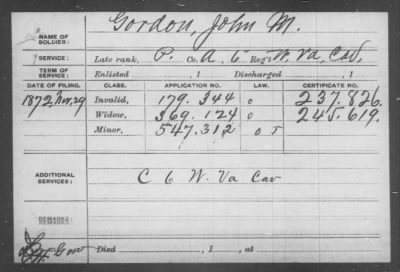 Gordon, John M.
NAME OF SOLDIER:
SERVICE: Late rank, P. Co. A, 6" Reg't W. Va. Cav,
TERM OF SERVICE: Enlisted , 1 Discharged , 1
DATE OF FILING. CLASS. APPLICATION NO. LAW. CERTIFICATE NO.
1872, Nov, 29 Invalid, 179.344 o 237.826.
Widow, 369.124 o 245.619.
Minor, 547.312 O J
ADDITIONAL SERVICES: C 6 W. Va Cav
REMARKS:
Died , 1 , at